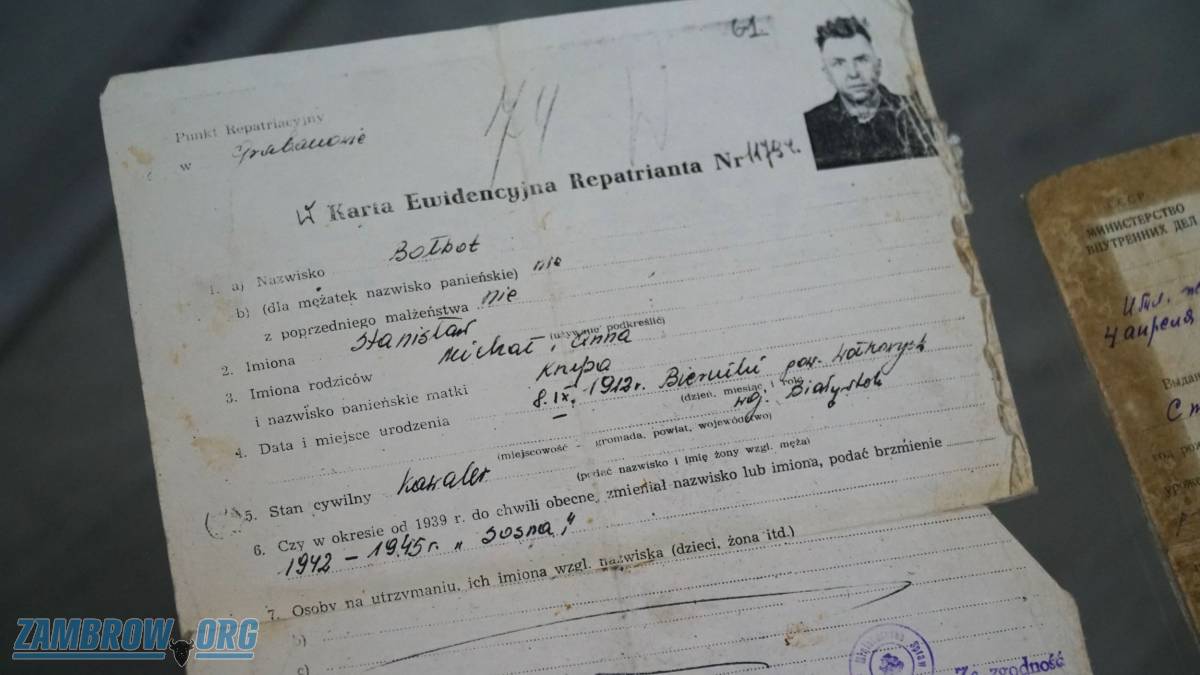 61.
Punkt Repatriacyjny
w
74 W
Karta Ewidencyjna Repatrianta Nr 1179 r.
1. a) Nazwisko Bołbot
b) (dla mężatek nazwisko panieńskie) nie
z poprzedniego małżeństwa nie
2. Imiona Stanisław
(używane podkreślić)
3. Imiona rodziców Michał i Anna
i nazwisko panieńskie matki Krupa
4. Data i miejsce urodzenia 8.IX. 1912 r. Bieruiki pow. Wołkowysk
(dzień, miesiąc i rok)
woj. Białystok
(miejscowość – gromada, powiat, województwo)
5. Stan cywilny Kawaler
(podać nazwisko i imię żony wzgl. męża)
6. Czy w okresie od 1939 r. do chwili obecne, zmieniał nazwisko lub imiona, podać brzmienie
1942 – 1945 r. „Sosna"
7. Osoby na utrzymaniu, ich imiona wzgl. nazwiska (dzieci, żona itd.)
b)
c)
Spraw
Za zgodność
СССР
МИНИСТЕРСТВО
ВНУТРЕННИХ ДЕЛ
4 апреля
Выдан
год рож
ZAMBROW.ORG